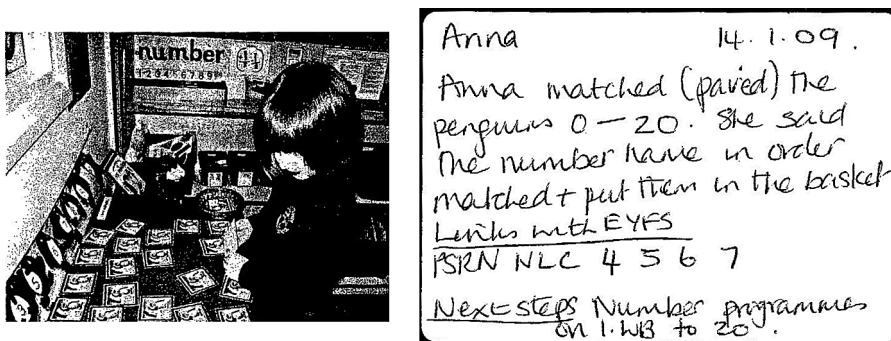 number
1 2 3 4 5 6 7 8 9
Anna 14.1.09.
Anna matched (paired) the
penguins 0 – 20. She said
the number name in order
matched + put them in the basket
Links with EYFS
PSRN NLC 4 5 6 7
Next steps Number programmes
on I.WB to 20.